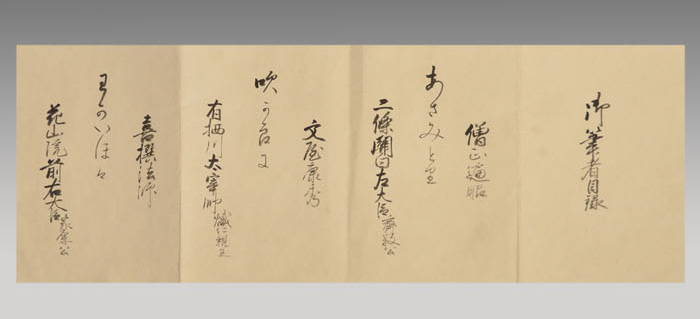 御筆者目録
僧正遍昭
あさみとり
二條關白左大臣齊敬公
文屋康秀
吹からに
有栖川太宰帥熾仁親王
喜撰法師
わかいほは
花山院前右大臣家厚公